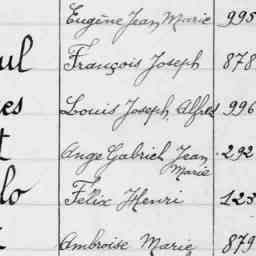 Eugène Jean Marie 995
ul François Joseph 878
es Louis Joseph Alfred 996
t Ange Gabriel Jean Marie 292
lo Félix Henri 123
Ambroise Marie 879